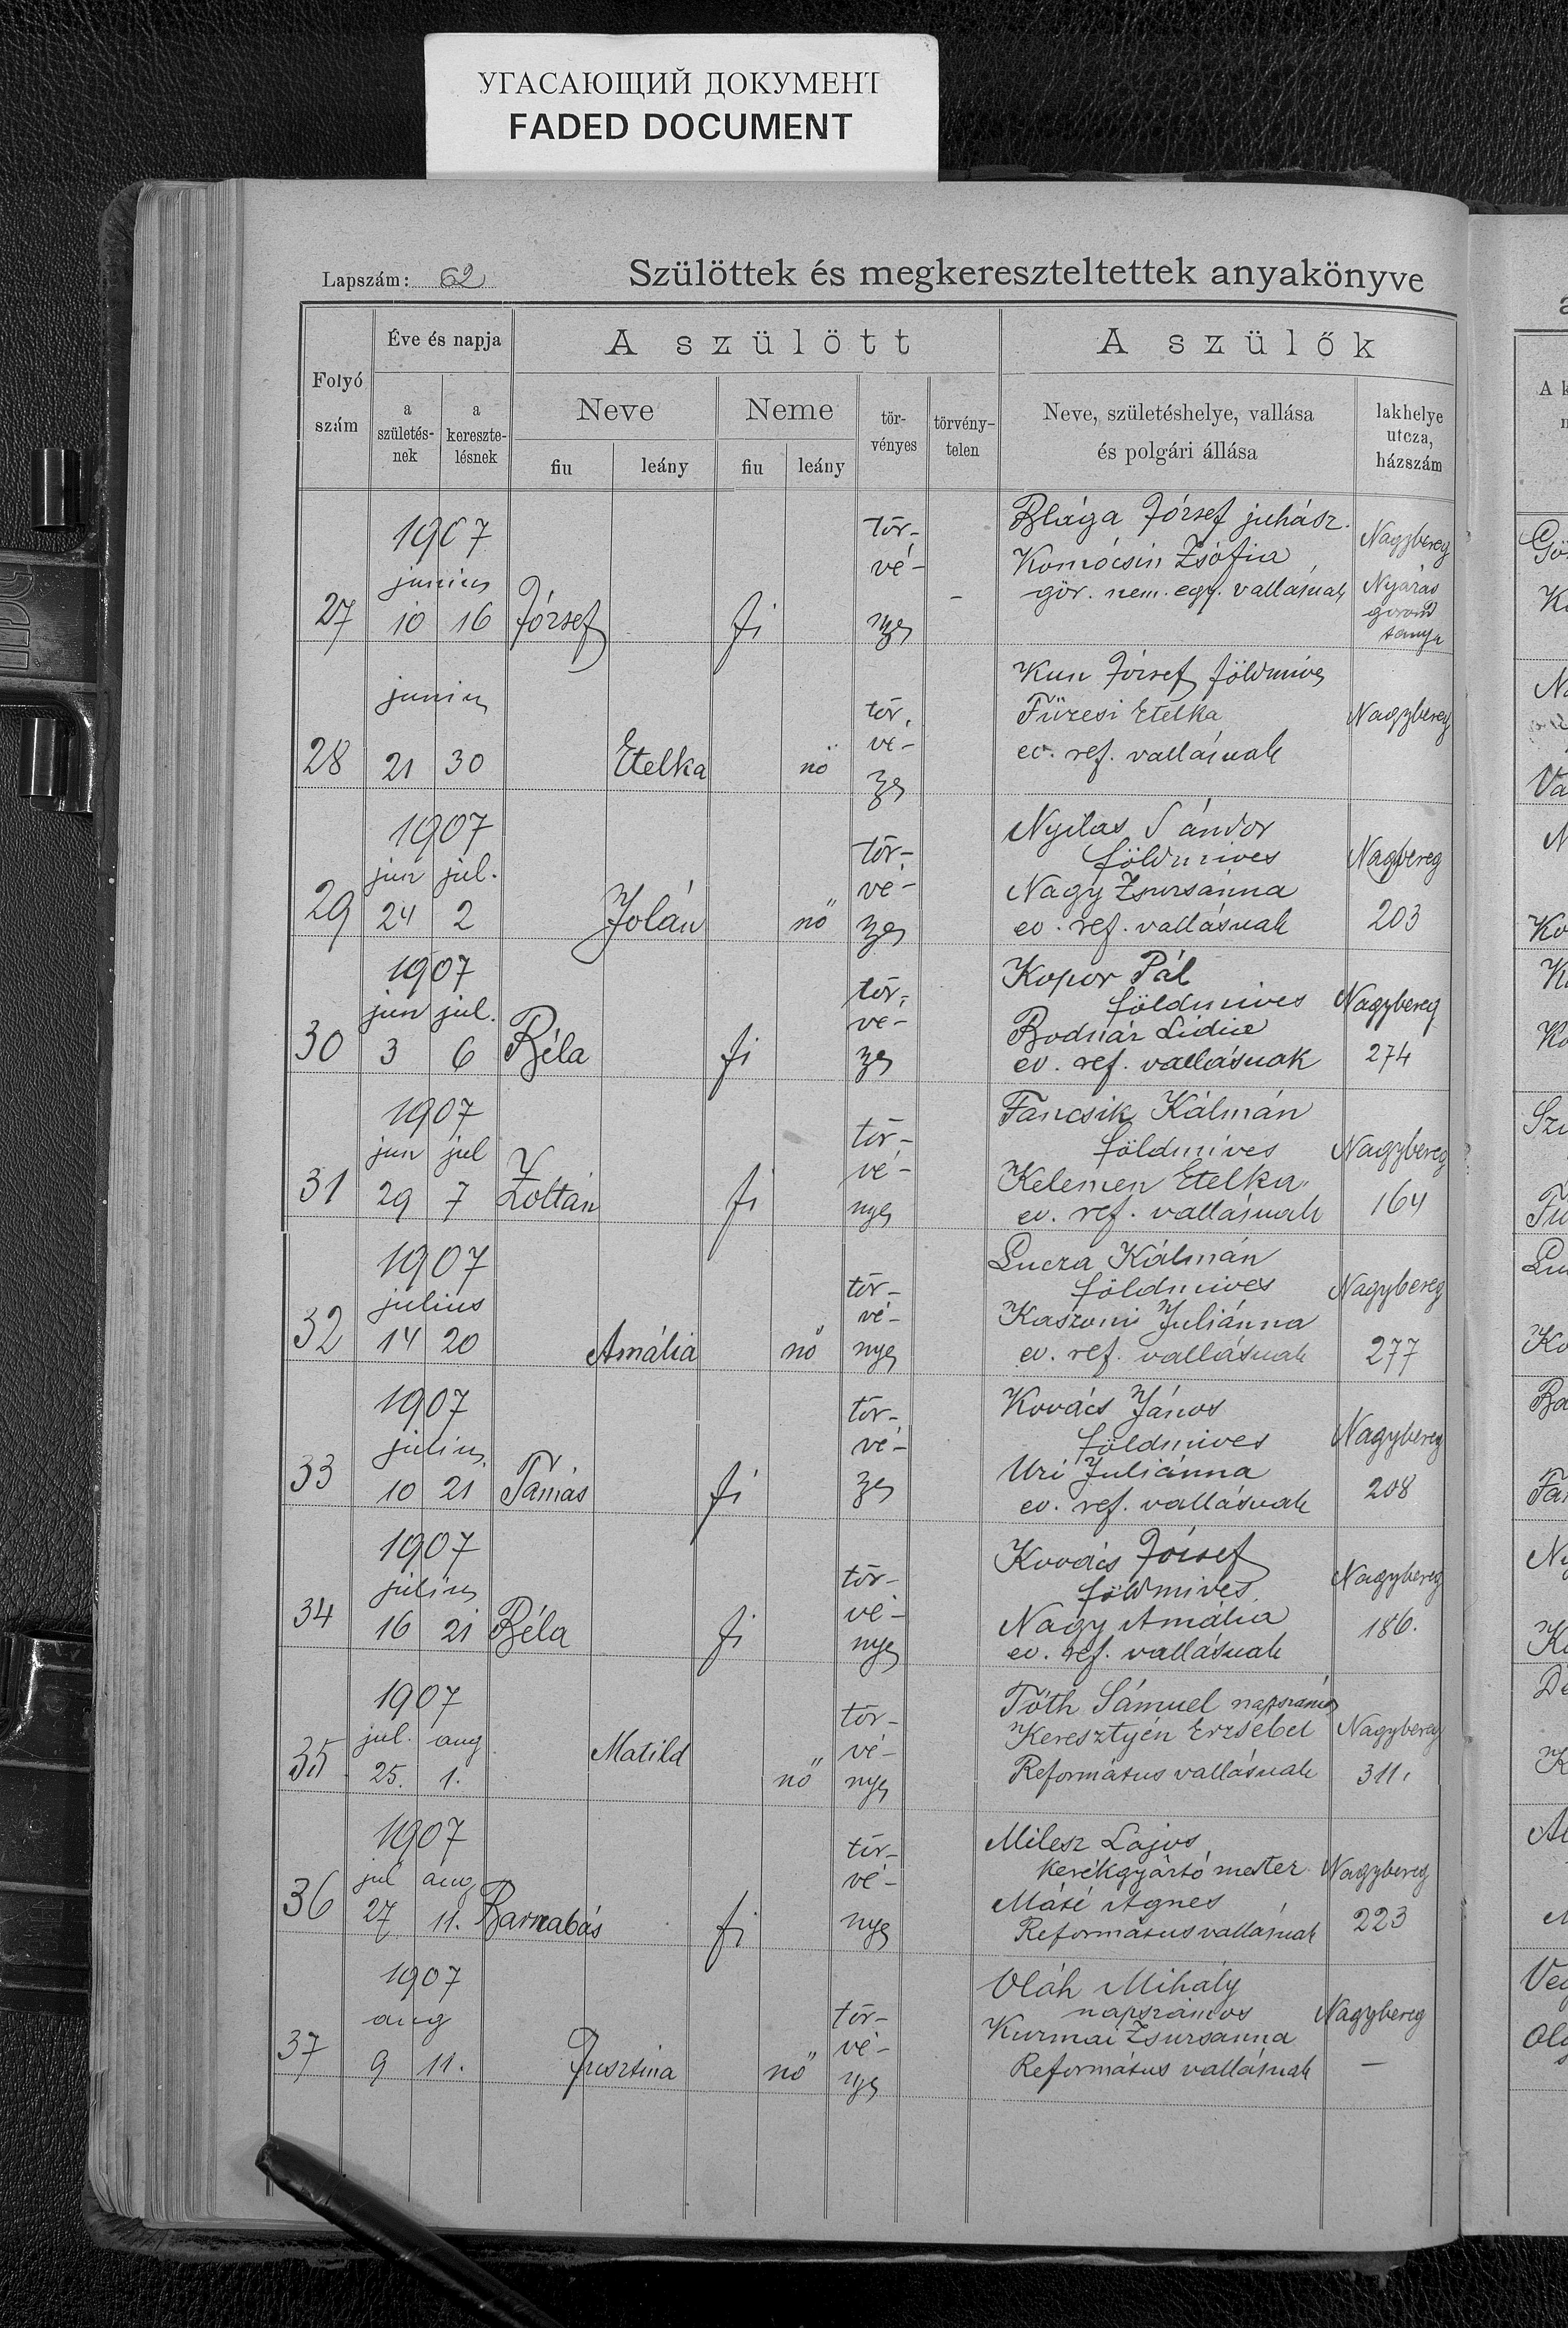 УГАСАЮЩИЙ ДОКУМЕНТ
FADED DOCUMENT
Lapszám: 62
Szülöttek és megkereszteltettek anyakönyve
Folyó szám
Éve és napja
a születés-nek
a kereszte-lésnek
A szülött
Neve
fiu
leány
Neme
fiu
leány
tör-vényes
törvény-telen
A szülők
Neve, születéshelye, vallása
és polgári állása
lakhelye
utcza,
házszám
27 1907 junius 10 16 József fi tör-vé-nyes -
Blága József juhász.
Komócsin Zsófia
gör. nem. egy. vallásuak
Nagybereg
Nyáras
gorond
tanya
28 junius 21 30 Etelka nő tör. vé-
Kun József földmives
Füzesi Etelka
ev. ref. vallásuak
Nagybereg
29 1907 jun jul. 24 2 Jolán nő tör-vé-
Nyilas Sándor
földmives
Nagy Zsuzsánna
ev. ref. vallásuak
Nagybereg
203
30 1907 jun jul. 3 6 Béla fi tör-vé-
Kopor Pál
földmives
Bodnár Lidia
ev. ref. vallásuak
Nagybereg
274
31 1907 jun jul 29 7 Zoltán fi tör-vé-nyes
Fancsik Kálmán
földmives
Kelemen Etelka
ev. ref. vallásuak
Nagybereg
164
32 1907 julius 14 20 Amália nő tör-vé-nyes
Lucza Kálmán
földmives
Kaszoni Juliánna
ev. ref. vallásuak
Nagybereg
277
33 1907 julius 10 21 Tamás fi tör-vé-
Kovács János
földmives
Uri Juliánna
ev. ref. vallásuak
Nagybereg
208
34 1907 julius 16 21 Béla fi tör-vé-nyes
Kovács József
földmives
Nagy Amália
ev. ref. vallásuak
Nagybereg
186.
35 1907 jul. aug 25. 1. Matild nő tör-vé-nyes
Tóth Sámuel napszámos
Keresztyén Erzsébet
Református vallásuak
Nagybereg
311.
36 1907 jul aug 27 11. Barnabás fi tör-vé-nyes
Milesz Lajos
kerékgyártó mester
Máté Ágnes
Református vallásuak
Nagybereg
223
37 1907 aug 9 11. Jusztina nő tör-vé-nyes
Oláh Mihály
napszámos
Kurmai Zsuzsanna
Református vallásuak
Nagybereg
—